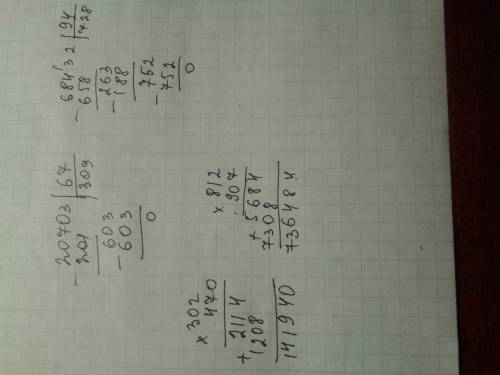 - 20703 | 67
201 | 309
- 603
603
0
- 68432 | 94
658 | 728
- 263
188
- 752
752
0
× 302
470
+ 2114
1208
141940
× 812
907
+ 5684
7308
736484